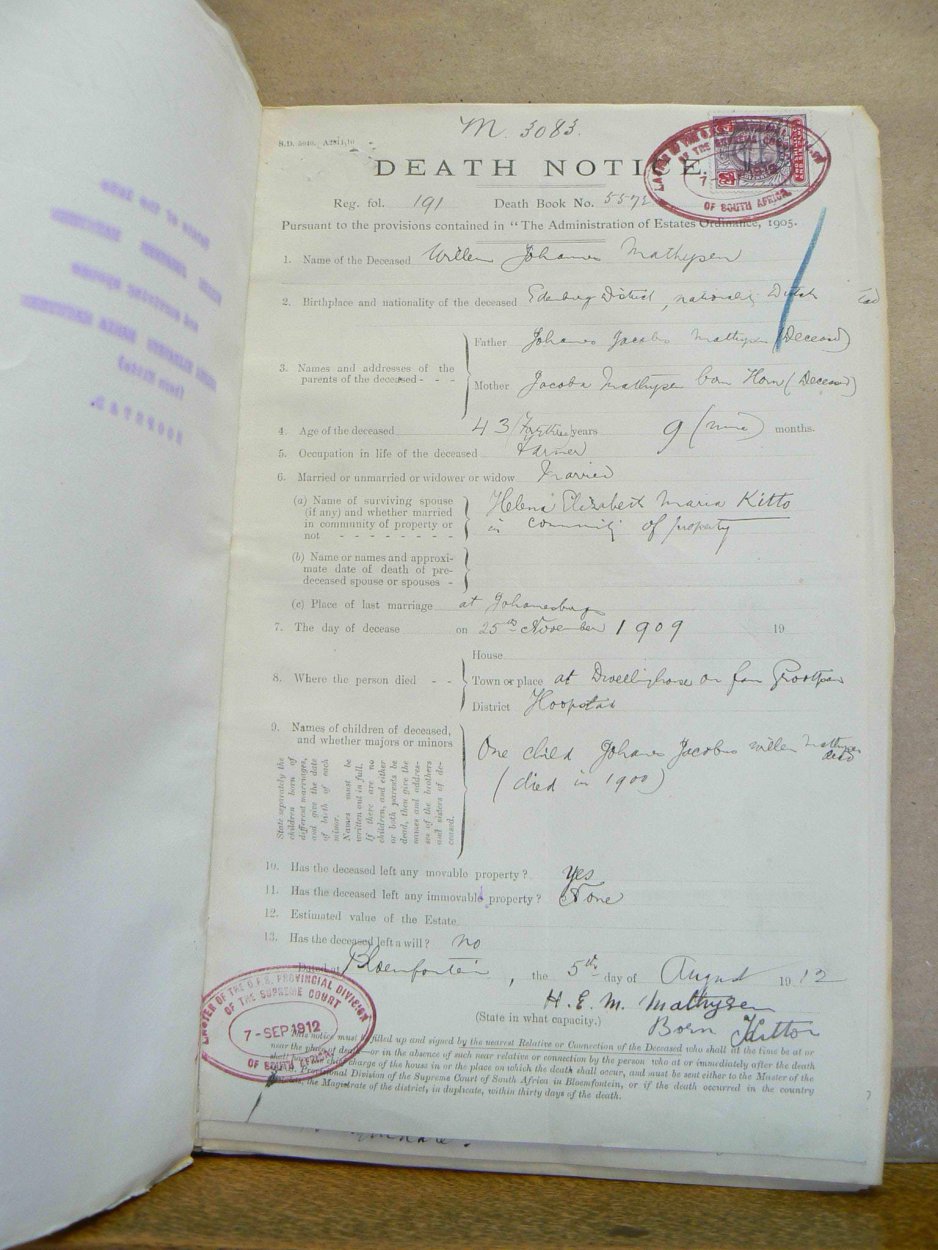 M. 3083.
S.D. 5040.
DEATH NOTICE.
Reg. fol. 191 Death Book No.
Pursuant to the provisions contained in "The Administration of Estates Ordinance, 1905.
1. Name of the Deceased Willem Johannes Mathysen
2. Birthplace and nationality of the deceased Edenburg District, nationality Dutch
3. Names and addresses of the parents of the deceased - - -
Father Johanes Jacobus Mathysen (Deceased)
Mother Jacoba Mathysen born Horn (Deceased)
4. Age of the deceased 43 years 9 (nine) months.
5. Occupation in life of the deceased Farmer
6. Married or unmarried or widower or widow Married
(a) Name of surviving spouse
(if any) and whether married
in community of property or
not - - - - - - - -
Helena Elizabeth Maria Kitto
in community of property
(b) Name or names and approxi-
mate date of death of pre-
deceased spouse or spouses -
(c) Place of last marriage at Johanesburg
7. The day of decease on 25th November 1909 19
8. Where the person died - -
House
Town or place at Dwellinghouse on farm Grootpan
District Hoopstad
9. Names of children of deceased,
and whether majors or minors
State separately the
children born of
different marriages,
and give the date
of birth of each
minor.
Names must be
written out in full.
If there are no
children, and either
or both parents be
dead, then give the
names and addres-
ses of the brothers
and sisters of de-
ceased.
One child Johanes Jacobus Willem Mathysen
(died in 1900)
10. Has the deceased left any movable property? Yes
11. Has the deceased left any immovable property? None
12. Estimated value of the Estate
13. Has the deceased left a will? no
Dated at Bloemfontein, the 5th day of August 1912
H. E. M. Mathysen
(State in what capacity.) Born Kitto
This notice must be filled up and signed by the nearest Relative or Connection of the Deceased who shall at the time be at or
near the place of death—or in the absence of such near relative or connection by the person who at or immediately after the death
shall have the chief charge of the house in or the place on which the death shall occur, and must be sent either to the Master of the
Provincial Division of the Supreme Court of South Africa in Bloemfontein, or if the death occurred in the country
the Magistrate of the district, in duplicate, within thirty days of the death.
MASTER OF THE O.F.S. PROVINCIAL DIVISION
OF THE SUPREME COURT
7-SEP 1912
OF SOUTH AFRICA
OF SOUTH AFRICA